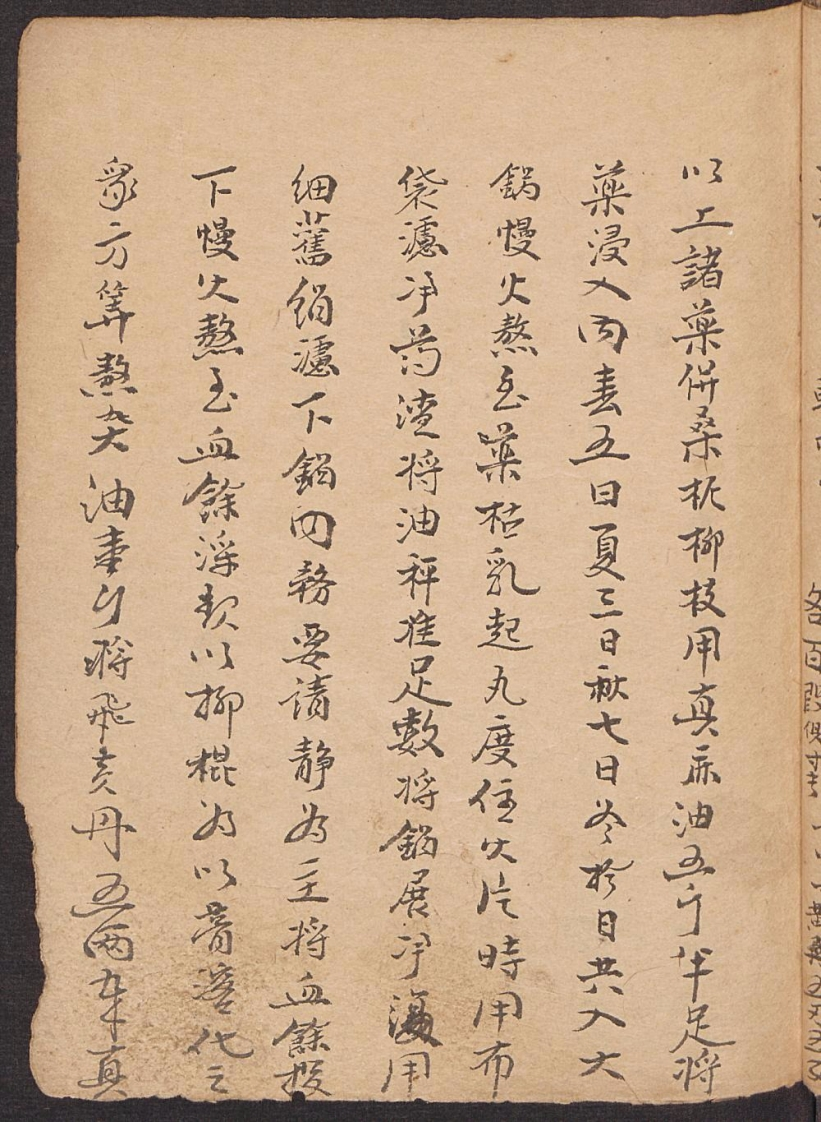 以上諸藥併桑枝柳枝用真麻油五斤半足將
藥浸入內春五日夏三日秋七日冬拾日共入大
鍋慢火熬至藥枯乳起丸度住火片時用布
袋濾净药渣將油秤准足數將鍋展净復用
細舊絹濾下鍋內務要請静為主將血餘投
下慢火熬至血餘浮 以柳棍為以膏溶化之
象方算熬 油 將飛黃丹五兩 真
各百